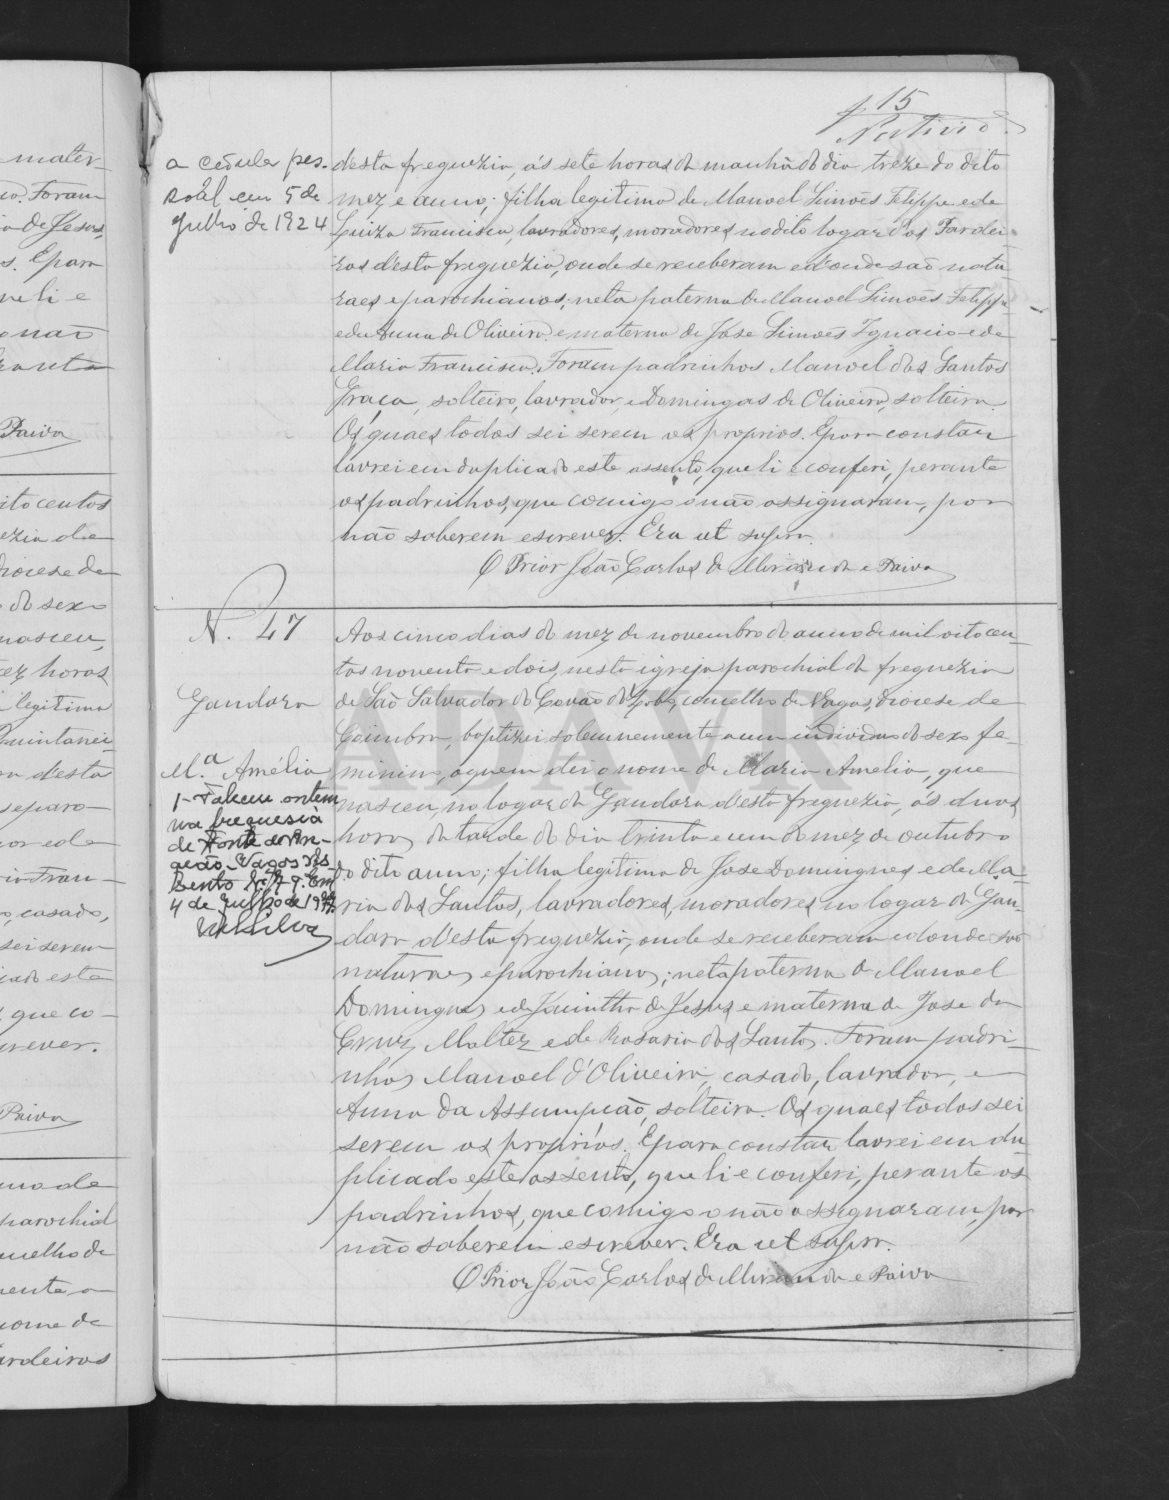 15
a cedula pes-
soal em 5 de
Julho de 1924
desta freguezia, ás sete horas da manhã do dia treze do dito
mez e anno; filha legitima de Manoel Simões Felippe e de
Luiza Francisca, lavradores, moradores no dito logar das Pardei-
ras d'esta freguezia, onde se receberam e d'onde são natu-
raes e parochianos; neta paterna de Manoel Simões Felippe
e de Anna de Oliveira e materna de José Simões Ignacio e de
Maria Francisca. Foram padrinhos Manoel dos Santos
Graça, solteiro, lavrador, e Domingas de Oliveira, solteira.
Os quaes todos sei serem os proprios. E para constar
lavrei em duplicado este assento, que li e conferi, perante
os padrinhos, que comigo o não assignaram, por
não saberem escrever. Era ut supra.
O Prior João Carlos de Miranda e Paiva
N. 47
Gandara
M.ª Amélia
1- Faleceu ontem
na freguesia
de Fonte de An-
geão - Vagos
4 de Julho de
Aos cinco dias do mez de novembro do anno de mil oitocen-
tos noventa e dois, nesta igreja parochial da freguezia
de São Salvador do Covão do Lobo, concelho de Vagos, Diocese de
Coimbra, baptizei solemnemente a um individuo do sexo fe-
minino, a quem dei o nome de Maria Amelia, que
nasceu, no logar da Gandara d'esta freguezia, ás duas
horas da tarde do dia trinta e um do mez de outubro
do dito anno; filha legitima de José Domingues e de Ma-
ria dos Santos, lavradores, moradores no logar da Gan-
dara d'esta freguezia, onde se receberam e donde são
naturaes e parochianos; neta paterna de Manoel
Domingues e de Jacintha de Jesus e materna de José da
Cruz Maltez e de Rosaria dos Santos. Foram padri-
nhos Manoel d'Oliveira, casado, lavrador, e
Anna da Assumpção, solteira. Os quaes todos sei
serem os proprios. E para constar lavrei em du-
plicado este assento, que li e conferi, perante os
padrinhos, que comigo o não assignaram, por
não saberem escrever. Era ut supra.
O Prior João Carlos de Miranda e Paiva
ADAVR